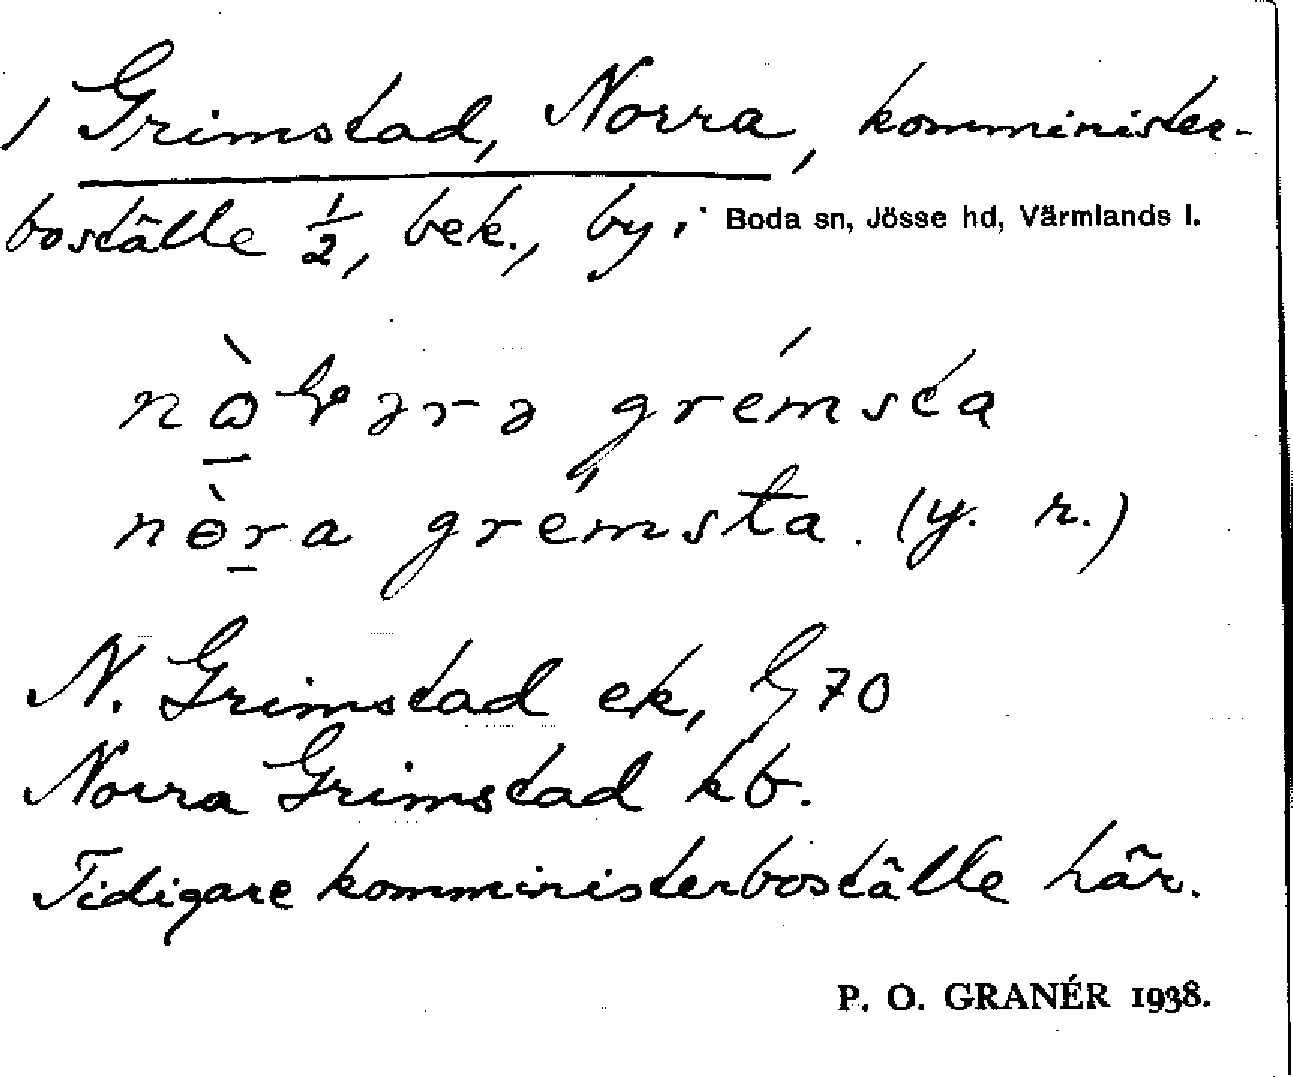 1 Grimstad, Norra, komminister-
boställe ½, bek., by. Boda sn, Jösse hd, Värmlands l.
grémsta
nòra grémsta. (y. r.)
N. Grimstad ek, G 70
Norra Grimstad kb.
Tidigare komministerboställe här.
P. O. GRANÉR 1938.